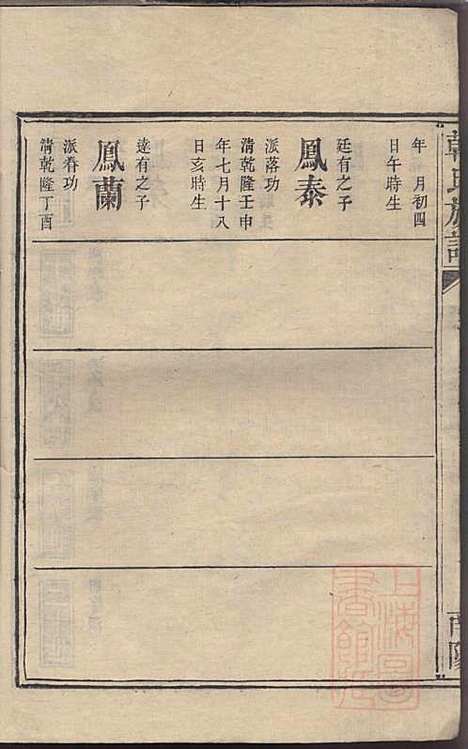 韓氏族譜
南陽
年 月初四
日午時生
鳳泰
廷有之子
派落功
清乾隆壬申
年七月十八
日亥時生
鳳蘭
達有之子
派眷功
清乾隆丁酉